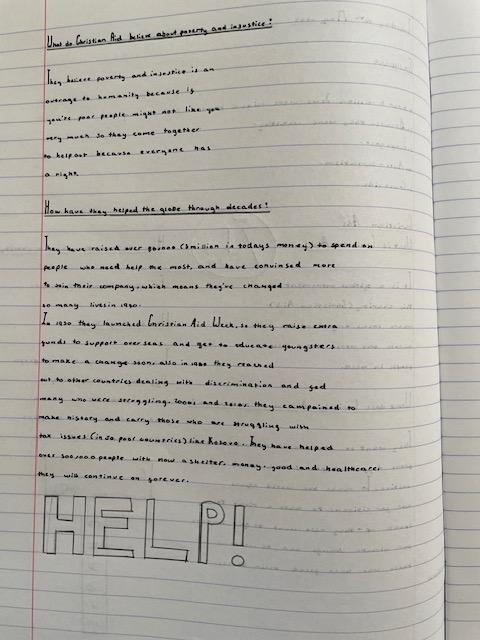 What do Christian Aid believe about poverty and injustice?
They believe poverty and injustice is an
outrage to humanity because if
you're poor people might not like you
very much so they come together
to help out because everyone has
a right.
How have they helped the globe through decades?
They have raised over (3 million in todays money) to spend on
people who need help the most, and have convinsed more
to join their company, which means they've changed
so many lives in 1930.
In 1950 they launched Christian Aid Week, so they raise extra
funds to support overseas and get to educate youngsters
to make a change soon, also in they reached
out to other countries dealing with discrimination and fed
many who were struggling. 2000s and 2010s they campained to
make history and carry those who are struggling with
tax issues (in so poor countries) like Kosovo. They have helped
over people with now a shelter, money, food and healthcare
they will continue on forever.
HELP!